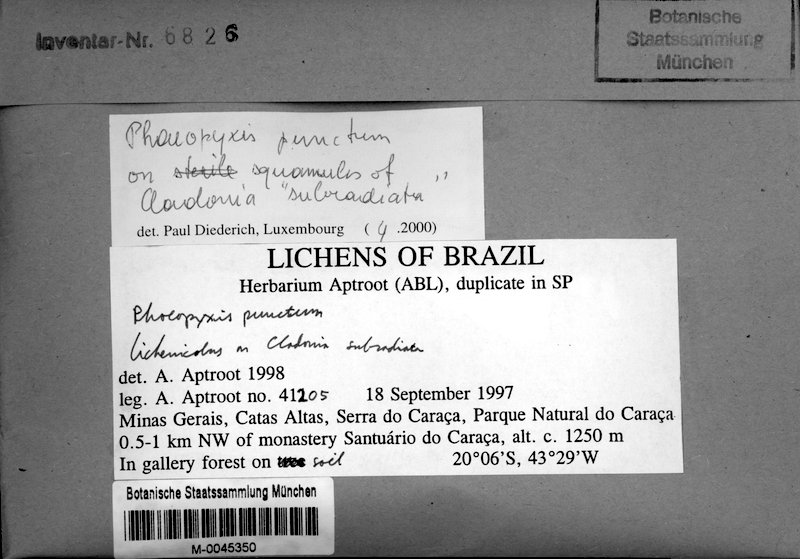 Inventar-Nr. 6826
Botanische
Staatssammlung
München
Phaeopyxis punctum
on sterile squamules of
Cladonia "subradiata"
det. Paul Diederich, Luxembourg (4.2000)
LICHENS OF BRAZIL
Herbarium Aptroot (ABL), duplicate in SP
Phaeopyxis punctum
lichenicolous on Cladonia subradiata
det. A. Aptroot 1998
leg. A. Aptroot no. 41205 18 September 1997
Minas Gerais, Catas Altas, Serra do Caraça, Parque Natural do Caraça
0.5-1 km NW of monastery Santuário do Caraça, alt. c. 1250 m
In gallery forest on tree soil 20°06'S, 43°29'W
Botanische Staatssammlung München
M-0045350